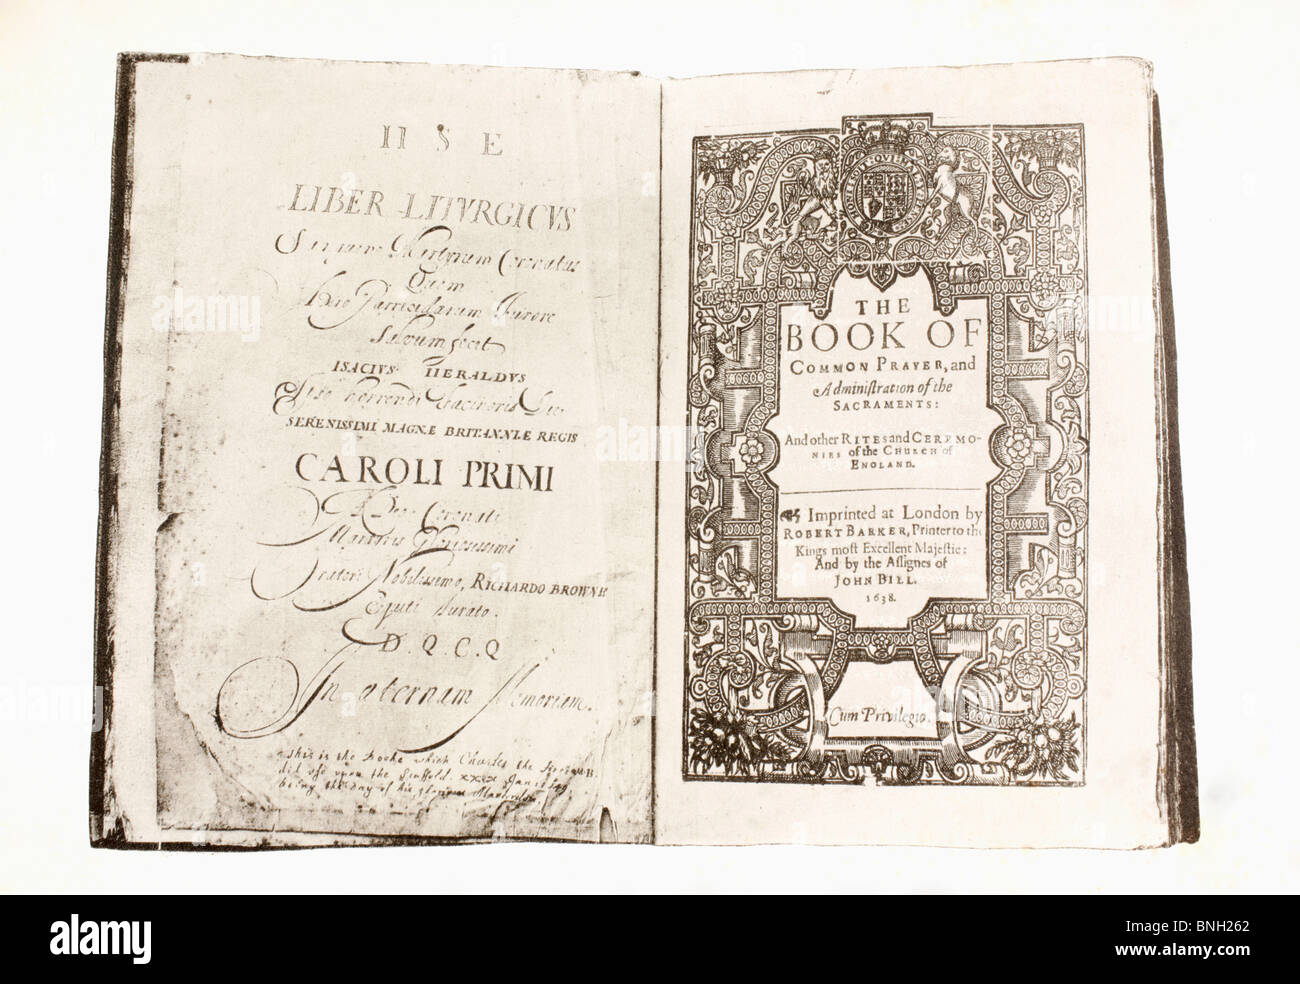 II S E
LIBER LITVRGICVS
Martyrum Coronatus
Quem
Hic Parricidarum Furore
Salvum fecit
ISACIVS HERALDVS
SERENISSIMI MAGNÆ BRITANNIÆ REGIS
CAROLI PRIMI
A Deo Coronati
Martiris Gloriosissimi
Oratori Nobilissimo, RICHARDO BROWNE
Equiti Aurato.
D. Q. C. Q
In æternam Memoriam.
this is the booke which Charles the
did use upon the Scaffold xxix Jan
being the day of his glorious
EQVI
THE
BOOK OF
COMMON PRAYER, and
Adminiſtration of the
SACRAMENTS:
And other RITES and CEREMO-
NIES of the CHURCH of
ENGLAND.
Imprinted at London by
ROBERT BARKER, Printer to the
Kings moſt Excellent Majeſtie:
And by the Aſſignes of
JOHN BILL.
1638.
Cum Privilegio.
alamy
alamy
Image ID: BNH262
www.alamy.com